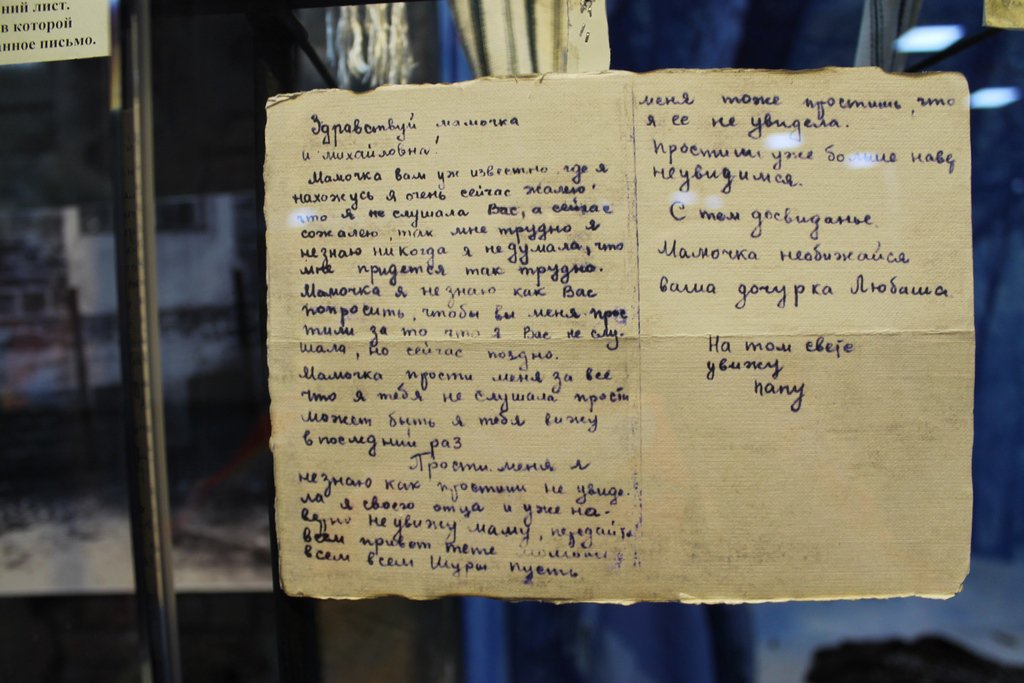 ний лист.
в которой
нное письмо.
Здравствуй мамочка
и михайловна!
Мамочка вам уж известно где я
нахожусь я очень сейчас жалею,
что я не слушала Вас, а сейчас
сожалею, так мне трудно я
незнаю никогда я недумала, что
мне придется так трудно.
Мамочка я незнаю как Вас
попросить, чтобы вы меня прос
тили за то что я Вас не слу-
шала, но сейчас поздно.
Мамочка прости меня за все
что я тебя не слушала прости
может быть я тебя вижу
в последний раз
Прости меня я
незнаю как простиш не увиде-
ла я своего отца и уже на-
верно неувижу маму, передайте
всем привет тете
всем всем Шуры пусть
меня тоже простишь, что
я ее не увидела.
Простиш уже больше навер
неувидимся.
С тем досвиданье.
Мамочка необижайся
ваша дочурка Любаша
На том свете
увижу
папу